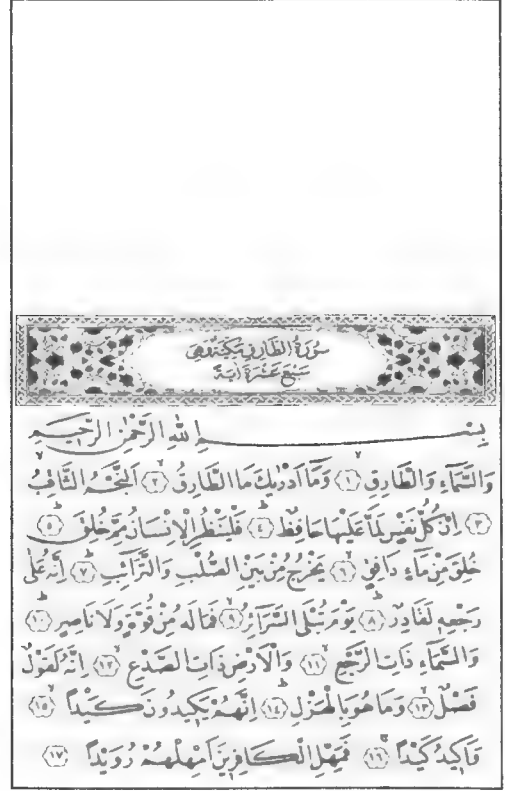 سُورَةُ الطَّارِقِ مَكِّيَّةٌ وَهِىَ
سَبْعَ عَشْرَةَ اٰيَةً
بِسْمِ اللّٰهِ الرَّحْمٰنِ الرَّحِيمِ
وَالسَّمَٓاءِ وَالطَّارِقِۙ ﴿١﴾ وَمَٓا اَدْرٰيكَ مَا الطَّارِقُۙ ﴿٢﴾ اَلنَّجْمُ الثَّاقِبُۙ
﴿٣﴾ اِنْ كُلُّ نَفْسٍ لَمَّا عَلَيْهَا حَافِظٌۜ ﴿٤﴾ فَلْيَنْظُرِ الْاِنْسَانُ مِمَّ خُلِقَۜ ﴿٥﴾
خُلِقَ مِنْ مَٓاءٍ دَافِقٍۙ ﴿٦﴾ يَخْرُجُ مِنْ بَيْنِ الصُّلْبِ وَالتَّرَٓائِبِۜ ﴿٧﴾ اِنَّهُ عَلٰى
رَجْعِهِ لَقَادِرٌۜ ﴿٨﴾ يَوْمَ تُبْلَى السَّرَٓائِرُۙ ﴿٩﴾ فَمَا لَهُ مِنْ قُوَّةٍ وَلَا نَاصِرٍۜ ﴿١٠﴾
وَالسَّمَٓاءِ ذَاتِ الرَّجْعِۙ ﴿١١﴾ وَالْاَرْضِ ذَاتِ الصَّدْعِۙ ﴿١٢﴾ اِنَّهُ لَقَوْلٌ
فَصْلٌۙ ﴿١٣﴾ وَمَا هُوَ بِالْهَزْلِۜ ﴿١٤﴾ اِنَّهُمْ يَكِيدُونَ كَيْدًاۙ ﴿١٥﴾
وَاَكِيدُ كَيْدًاۚ ﴿١٦﴾ فَمَهِّلِ الْكَافِرِينَ اَمْهِلْهُمْ رُوَيْدًا ﴿١٧﴾